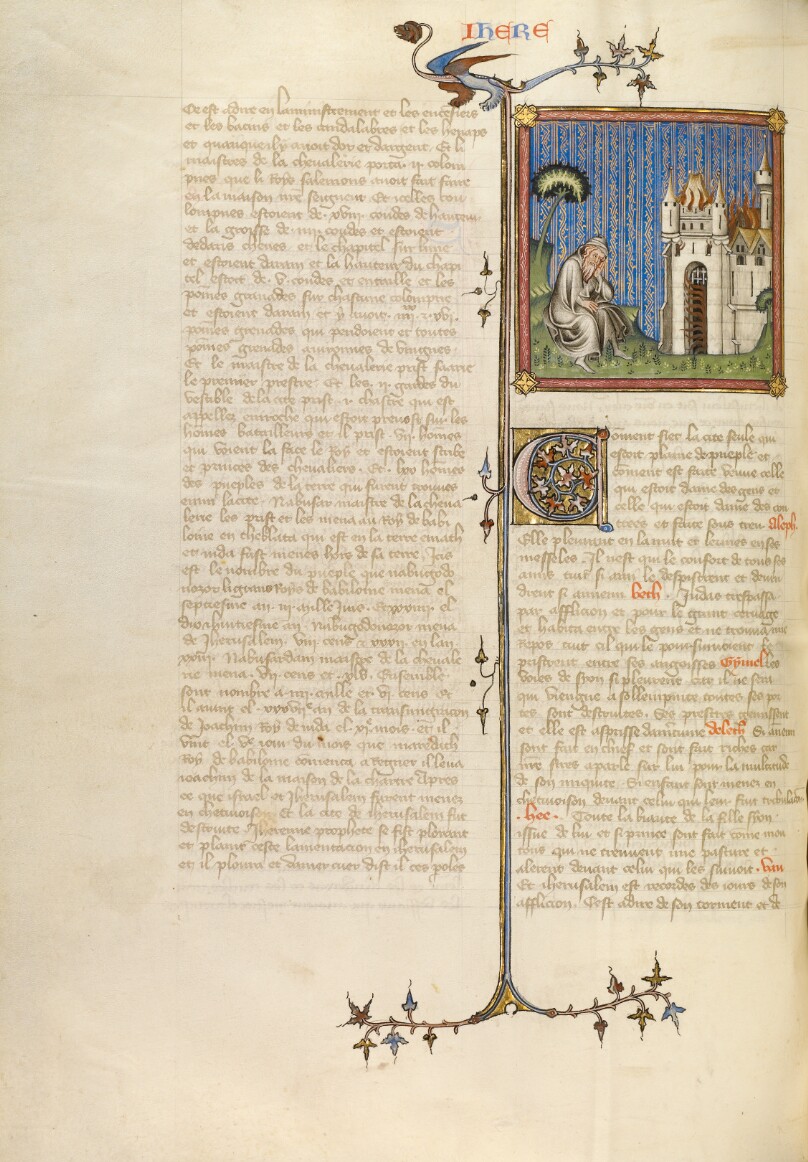 IHERE
Ce est adire en lamunistrement et les encensiers
et les bacins et les candalabres et les henaps
et quanqueil y auoit dor et dargent. Et li
maistres de la cheualerie porta .ii. colom
pnes que li Roys salemons auoit fait faire
en la maison nre seigneur Et icelles cou
lompnes estoient de .xviii. coudes de hauteur
et la grosse de .iiii. coudes et estoient
dedans et le chapitel sur lune
et estoient darain et la hauteur du chapi
tel estoit de .v. coudes et entaillie et les
pomes granades sur chascune colompne
et estoient darain et y auoit
pomes grenades qui pendoient et toutes
pomes grenades auironnes de
Et le maistre de la cheualerie prist saraie
le premier prestre. Et les .ii. gardes du
vestible de la cite prist .i. chastre qui est
appellez qui estoit preuost sur les
homes batailleurs et il prist .vii. homes
qui voient la face le Roy et estoient scribe
et princes des cheualiers. Et .lx. homes
des pueples de la terre qui furent trouues
enmi la cite. Nabusar maistre de la cheua
lerie les prist et les mena au Roy de babi
loine en qui est en la terre emath
et iuda fust menes hors de sa terre. Icis
est le nombre du pueple que nabugodo
nozor Roys de babiloine mena el
septiesme an .iii. mille Juis. el
dixhuitiesme an. Nabugodonozor mena
de Jherusalem .viii. cens en lan
Nabusardam maistre de la cheuale
rie mena .vii. cens et .xlv. Ensemble
sont nombre a .iiii. mille et .vi. cens Et
il auint el .xxxvii.e an de la transmigracion
de Joachim Roy de iuda el .xi.e mois et il
vint el .v.e iour du mois que
Roy de babiloine comenca a Regner il leua
ioachim de la maison de la chartre Apres
ce que israel et Jherusalem furent menez
en chetiuoison Et la cite de iherusalem fut
destruite Jheremie prophete se sist plorant
et plaint ceste lamentacion en iherusalem
et il ploura et damer cuer dist il ces poles
Coment siet la cite seule qui
estoit plaine de pueple et
coment est faite veuue celle
qui estoit dame des gens et
celle qui estoit dame des con
trees et faite sous treu. Aleph.
Elle pleurant en la nuit et lermes en ses
messeles. Il nest qui le confort de tous ses
amis tuit si ami le despistrent et deuin
drent si anemi beth. Judas trespassa
par afflicion et pour le grant seruage
et habita entre les gens et ne trouua mie
Repos tuit cil qui le poursiuuient le
pristrent entre ses angoisses Gymel les
voies de syon si pleurent car il ne sen
qui viengne a sollempnite toutes ses por
tes sont destruites. Ses prestres gemissent
et elle est apressee damertume deleth Si anemi
sont fait en chief et sont fait riches car
nre sires aparle sur lui pour la multitude
de son iniquite. Si enfant sont menez en
chetiuoison deuant celui qui leur fait tribulacion
.hee. Toute la biaute de la fille syon
issue de lui et si prince sont fait come mou
tons qui ne treuuent mie pasture et
alerent deuant celui qui les siuuoit .vau
Et iherusalem est recordes des iours de son
afflicion. Cest adire de son torment et de